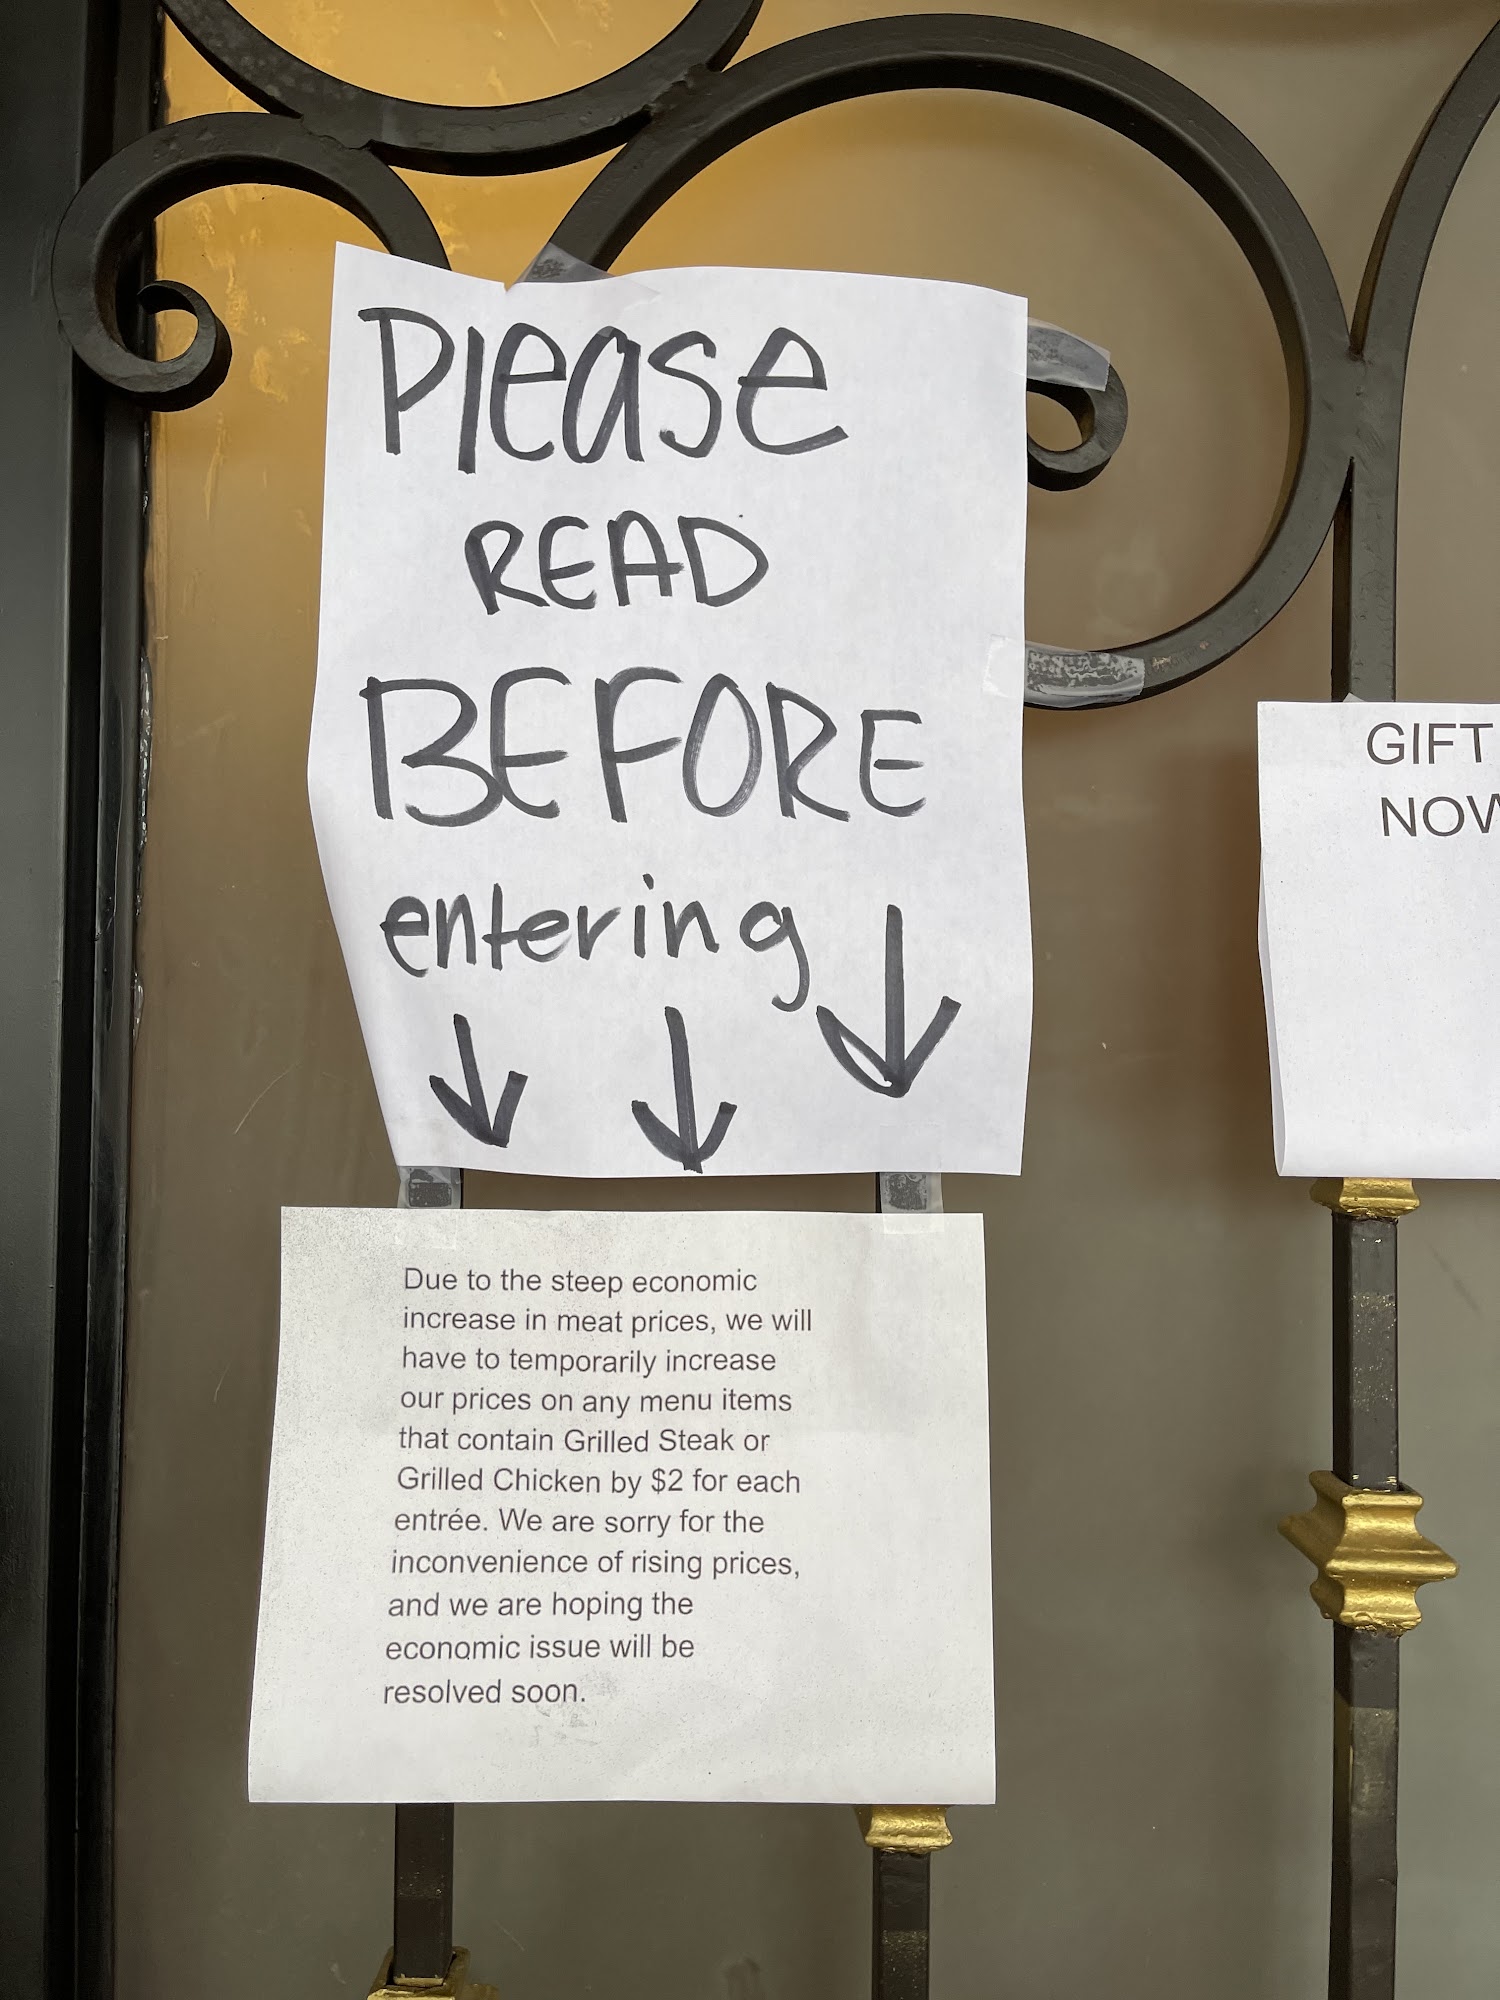 Please
READ
BEFORE
entering
Due to the steep economic
increase in meat prices, we will
have to temporarily increase
our prices on any menu items
that contain Grilled Steak or
Grilled Chicken by $2 for each
entrée. We are sorry for the
inconvenience of rising prices,
and we are hoping the
economic issue will be
resolved soon.
GIFT